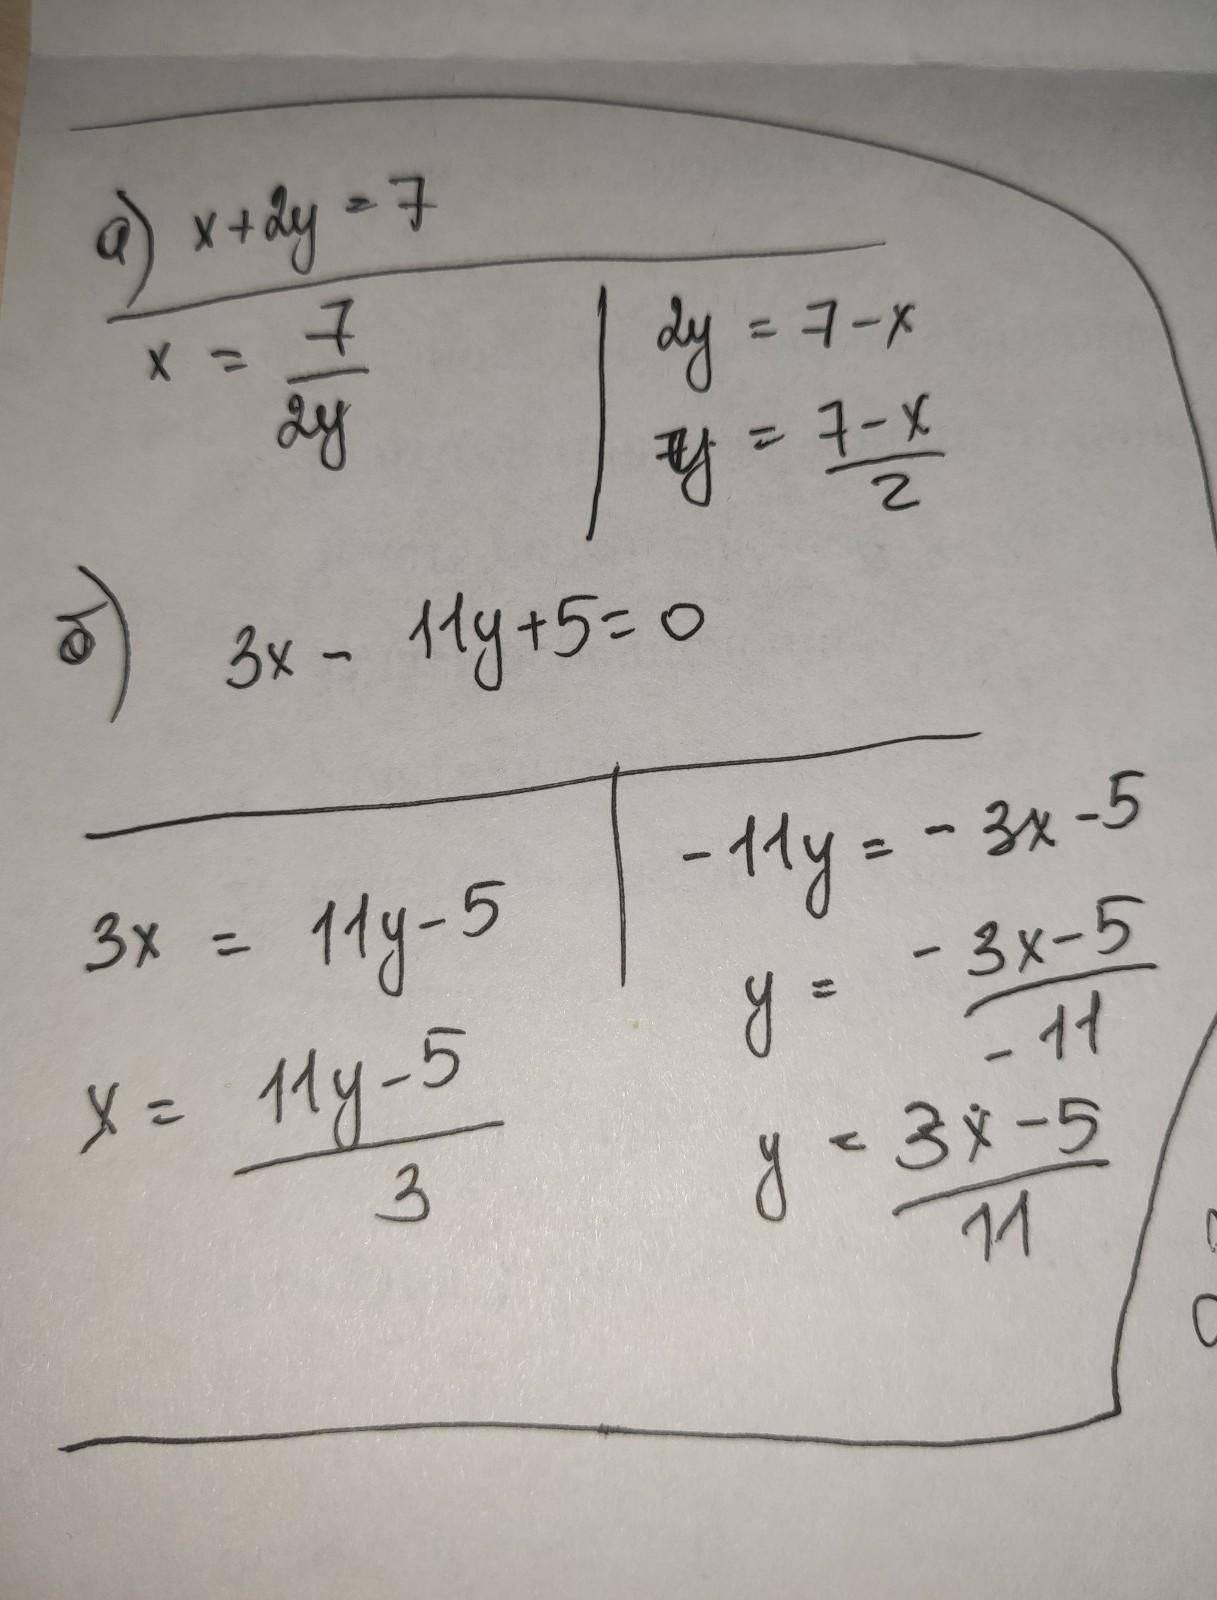 а) x+2y=7
x = 7/2y
2y = 7-x
y = 7-x/2
б) 3x - 11y+5=0
3x = 11y-5
x = 11y-5/3
-11y = -3x-5
y = -3x-5/-11
y = 3x-5/11